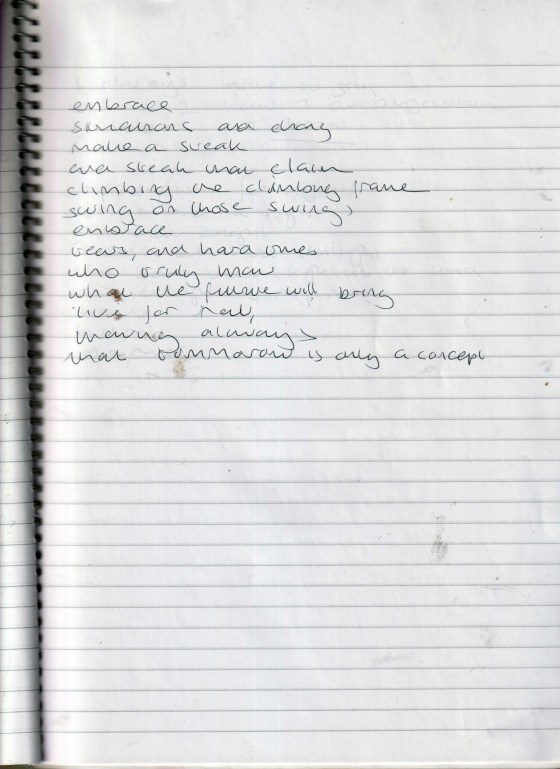 embrace
situations and chang
make a steak
and steak that claim
climbing the climbong frame
swing on those swings
embrace
tears, and hard times
who truly
what the future will bring
live for real,
knowing always
that tommarow is only a concept